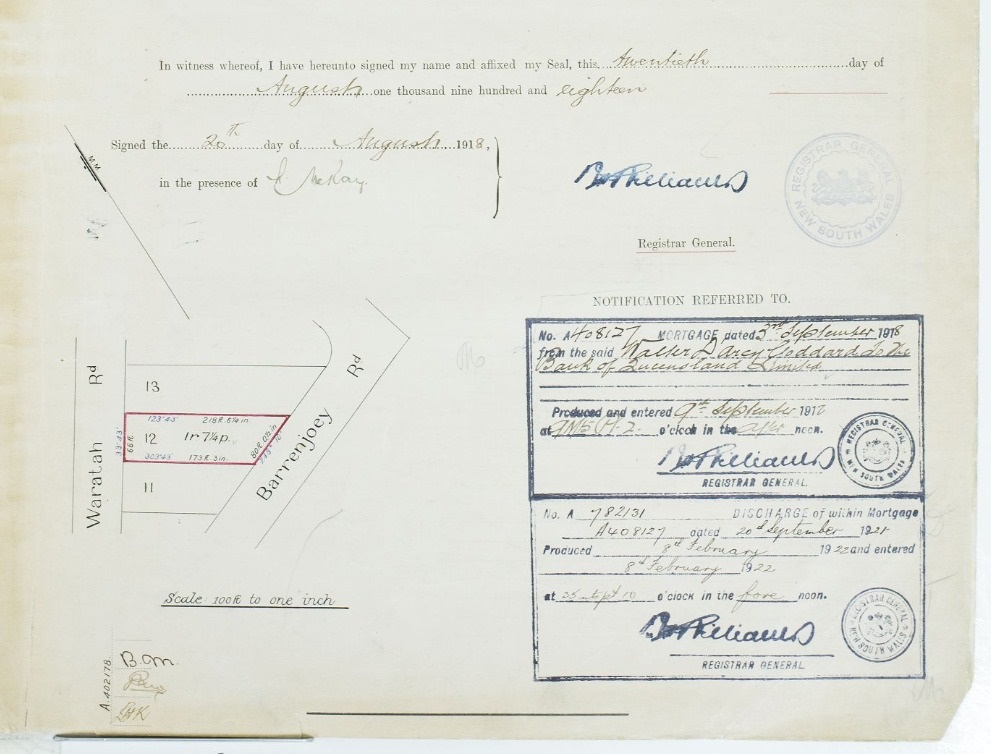 In witness whereof, I have hereunto signed my name and affixed my Seal, this twentieth day of
August, one thousand nine hundred and eighteen
Signed the 20th day of August 1918,
in the presence of McKay
REGISTRAR GENERAL
NEW SOUTH WALES
Registrar General.
NOTIFICATION REFERRED TO.
No. A408127 MORTGAGE dated 3rd September 1918
from the said Walter D'Arcy Goddard to The
Bank of Queensland Limited
Produced and entered 9th September 1918
at o'clock in the after noon.
REGISTRAR GENERAL
NEW SOUTH WALES
REGISTRAR GENERAL.
No. A 782131 DISCHARGE of within Mortgage
A408127 dated 20th September 1921
Produced 8th February 1922 and entered
8th February 1922
at 25 m pt 10 o'clock in the fore noon.
REGISTRAR GENERAL
NEW SOUTH WALES
REGISTRAR GENERAL
M.M.
Waratah Rd
Barrenjoey Rd
13
123°43' 218ft. 6¼in.
12 1r 7¼p.
33°43'
66ft.
303°43' 173ft. 3in.
11
Scale 100ft to one inch
A.402178
B.M.